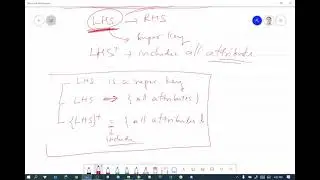 LHS → RHS
super key
LHS+ → include all attributes
LHS is a super key
LHS → { all attributes }
{LHS}+ = { all attributes }
include